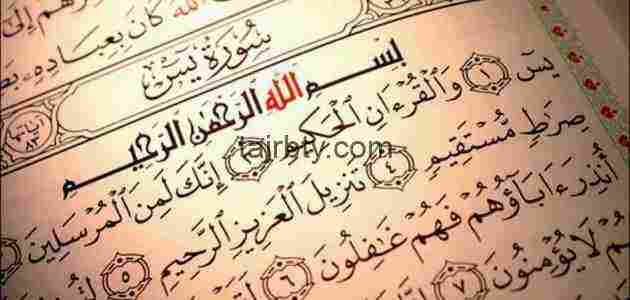 رُهُمْ إِلَىٰ
ٱللَّهَ كَانَ بِعِبَادِهِۦ بَصِ
سُورَةُ يسٓ
آياتها ٨٣
بِسْمِ ٱللَّهِ ٱلرَّحْمَٰنِ ٱلرَّحِيمِ
يسٓ ١ وَٱلْقُرْءَانِ ٱلْحَكِيمِ ٢ إِنَّكَ لَمِنَ ٱلْمُرْسَلِينَ
صِرَٰطٍ مُّسْتَقِيمٍ ٤ تَنزِيلَ ٱلْعَزِيزِ ٱلرَّحِيمِ ٥
أُنذِرَ ءَابَآؤُهُمْ فَهُمْ غَٰفِلُونَ ٦
لَا يُؤْمِنُونَ ٧
tajrbty.com